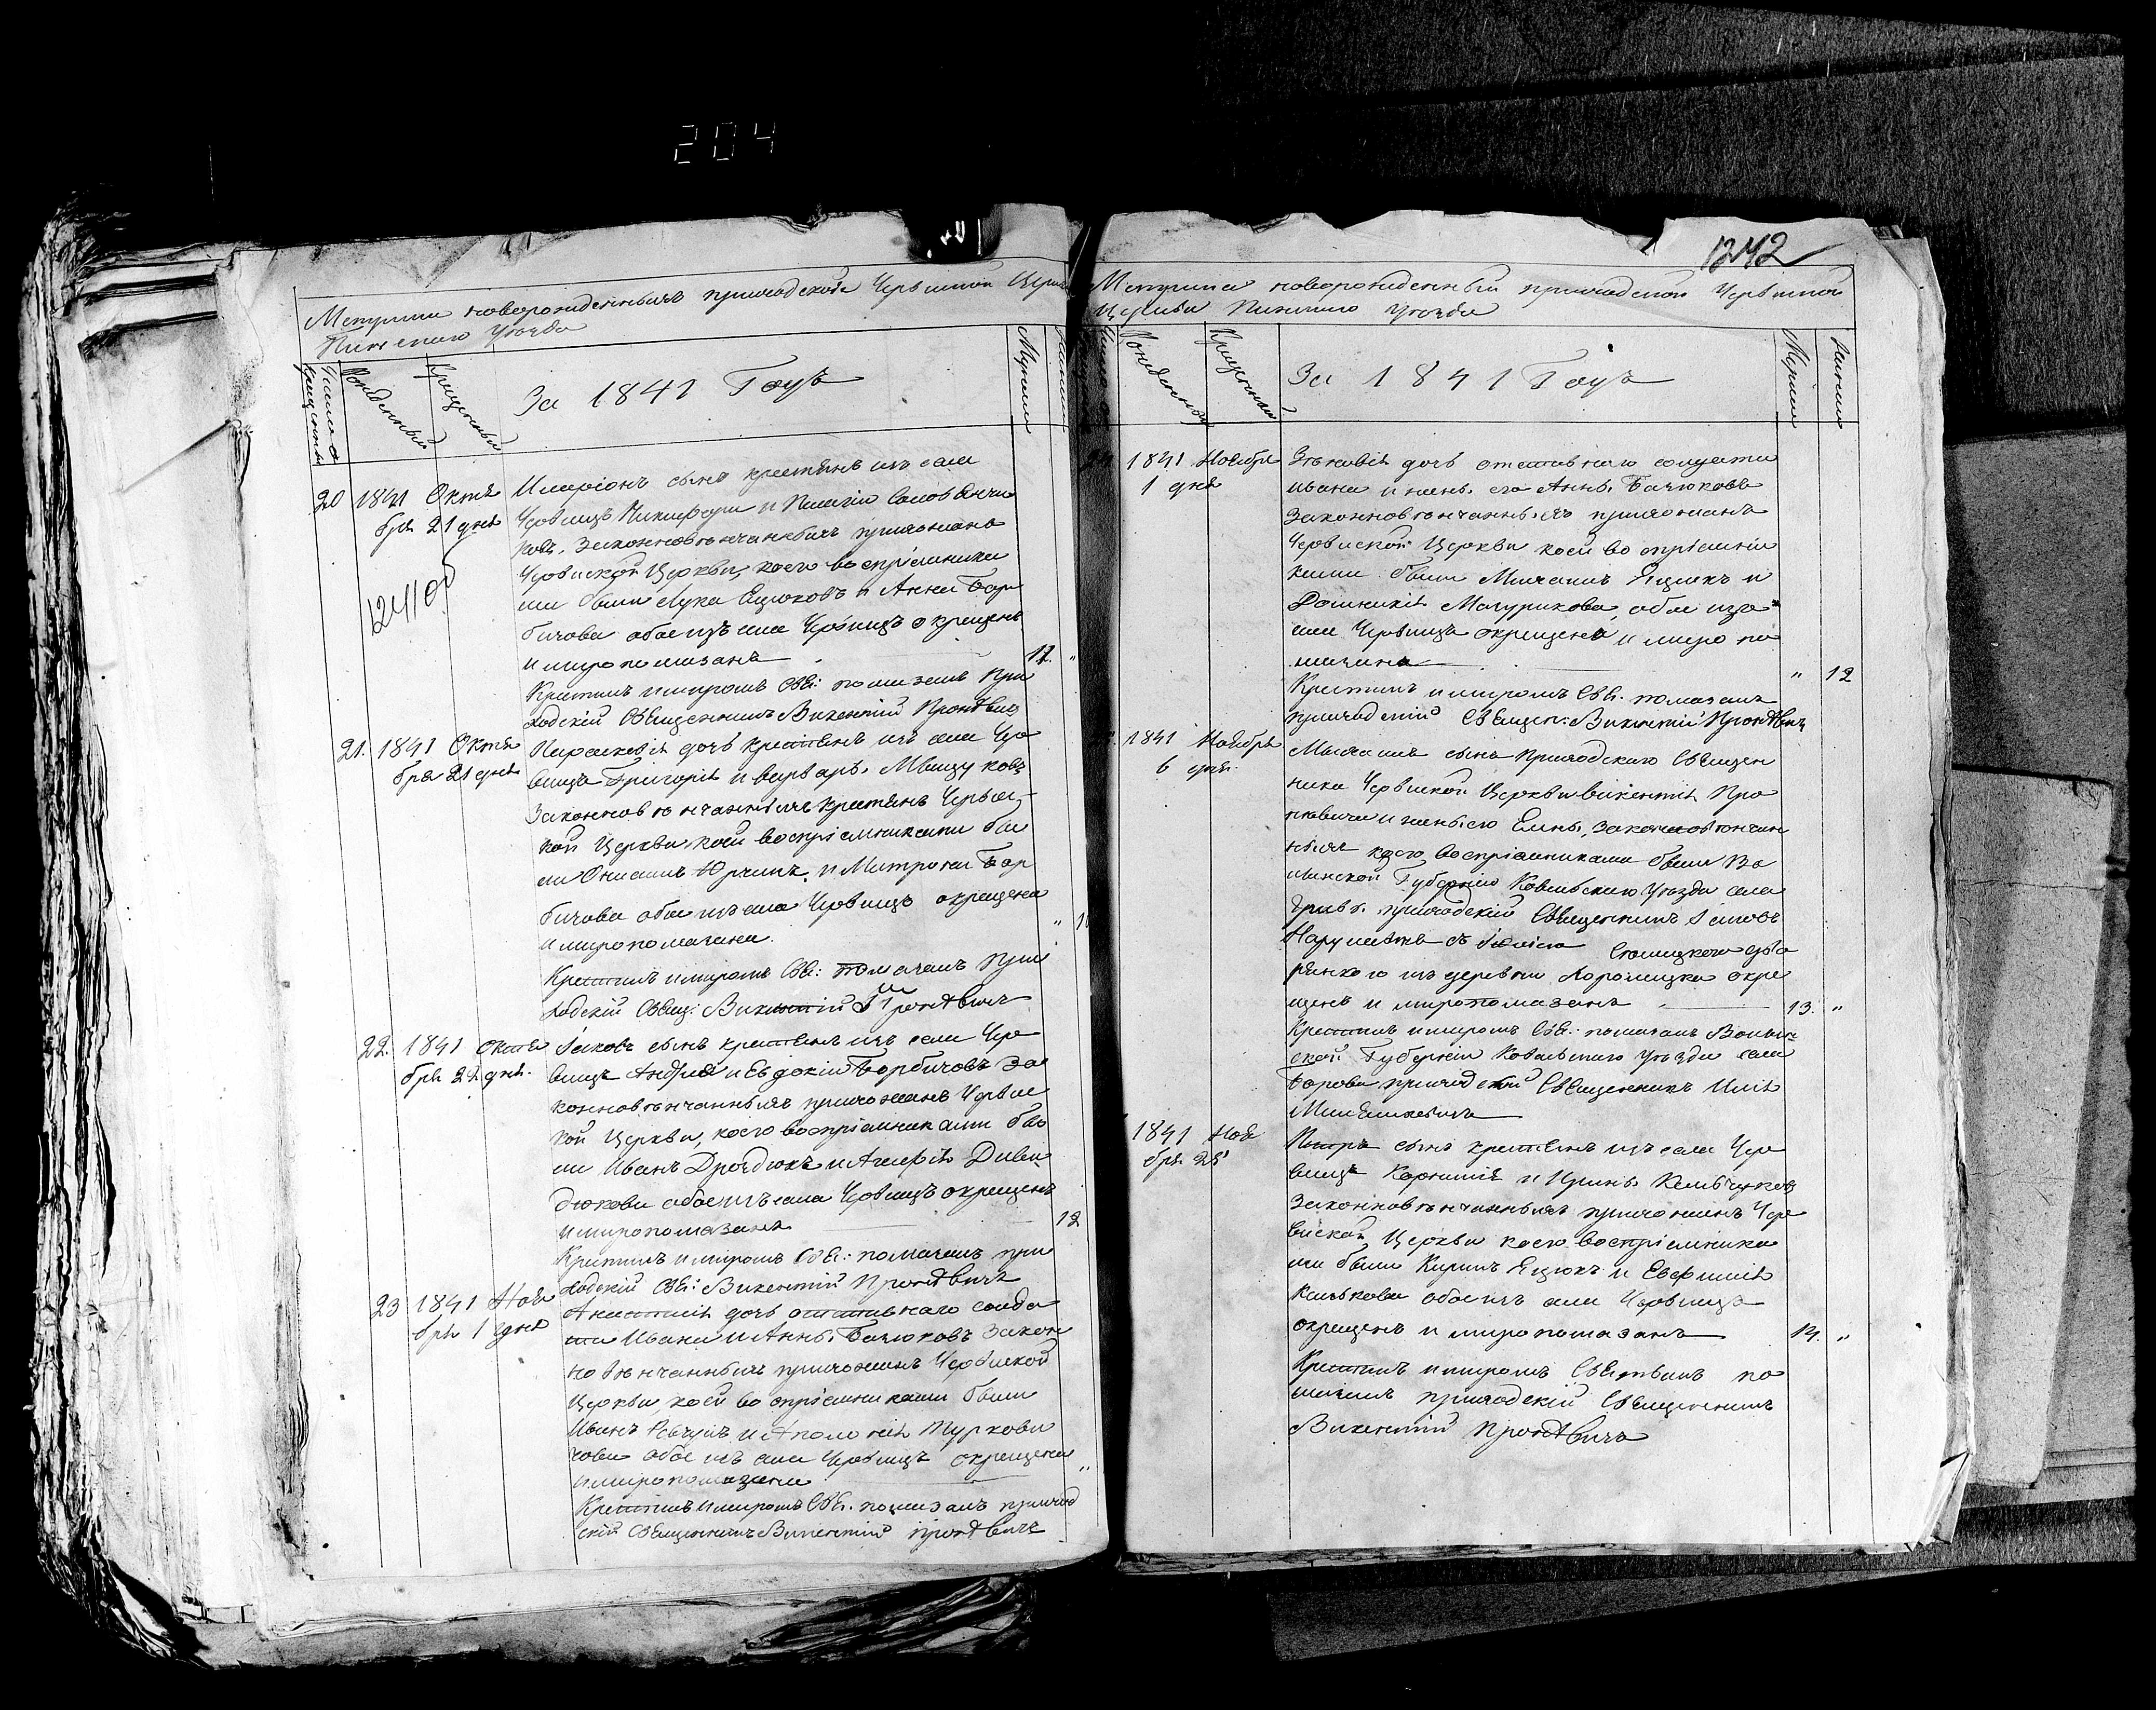 204
Метрики новорожденныхъ приходской Червиской Церкви
Пинского Уѣзда
Число крещенны
Рожденный
Крещенный
За 1841 Годъ
Мужеска
Женска
20 1841 Октя
бря 21 дня
1241 об
Иларіонъ сынъ крестьянъ изъ села
Червищъ Никифора и Пелагіи
ковъ, законновѣнчанныхъ прихожанъ
Червиской Церкви, коего воспріемника
ми были Лука Яцюковъ и Анна Бор
бичова обое изъ села Червищъ окрещенъ
и миропомазанъ 11. "
Крестилъ и миромъ Свя: помазалъ При
ходскій Священникъ Викентій Пронѣвичъ
21. 1841 Октя
бря 21 дня
Параскевія дочь крестьянъ изъ села Чер
вищъ Григорія и Варвары
Законновѣнчанныхъ крестьянъ Червис
кой Церкви, коей воспріемниками бы
ли Онисимъ Юрчикъ и Митрона Бор
бичова обое изъ села Червищъ окрещена
и миропомазана. "
Крестилъ и миромъ Свя: помазалъ При
ходскій Свящ: Викентій Пронѣвичъ
22. 1841 Октя
бря 22 дня.
Іаковъ сынъ крестьянъ изъ села Чер
вищъ Андрея и Евдокіи Борбичовъ за
конновѣнчанныхъ прихожанъ Червис
кой Церкви, коего воспріемниками бы
ли Иванъ Дроздюкъ и Агафія Диви
дюкова обое изъ села Червищъ окрещенъ
и миропомазанъ 12
Крестилъ и миромъ Свя: помазалъ при
ходскій Свя: Викентій Пронѣвичъ
23 1841 Ноя
бря 1 дня
Анастасія дочь отставнаго солда
та Ивана и Анны Бачюковъ Закон
новѣнчанныхъ прихожанъ Червиской
Церкви, коей воспріемниками были
Иванъ и Аполонія Туркови
чова обое изъ села Червищъ окрещена
и миропомазана "
Крестилъ и миромъ Свя. помазалъ приход
скій Священникъ Викентій Пронѣвичъ
1242
Метрика новорожденный приходской Червиской
Церкви Пинского Уѣзда
Число
Рожденный
Крещенный
За 1841 Годъ
Мужеска
Женска
1841 Ноября
1 дня
Зѣновія дочь отставнаго солдата
Ивана и жены его Анны Бачюковъ
законновѣнчанныхъ прихожанъ
Червиской Церкви коей воспріемни
ками были Михаилъ Яцюкъ и
Домникія Мазурикова, обое изъ
села Червищъ окрещена и миро по
мазана " 12
Крестилъ и миромъ Свя. помазалъ
приходскій Священ: Викентій Пронѣвичъ
1841 Ноября
6 дня.
Михаилъ сынъ Приходскаго Священ
ника Червиской Церкви Викентія Про
нѣвича и жены его Елены, законновѣнчан
ныхъ коего воспріемниками были Во
лынской Губерніи Ковельскаго Уѣзда села
приходскій Священникъ Іаковъ
дво
рянкою изъ деревни окре
щенъ и миропомазанъ 13. "
Крестилъ и миромъ Свя: помазалъ Волын
ской Губерніи Ковельскаго Уѣзда села
приходской Священникъ Илія
1841 Ноя
бря 25
Петръ сынъ крестьянъ изъ села Чер
вищъ Корнилія и Ирины
законновѣнчанныхъ прихожанъ Чер
виской Церкви коего воспріемника
ми были Кирилъ Яцюкъ и Евфимія
обое изъ села Червищъ
окрещенъ и миропомазанъ 14. "
Крестилъ и миромъ Святымъ по
мазалъ приходскій Священникъ
Викентій Пронѣвичъ